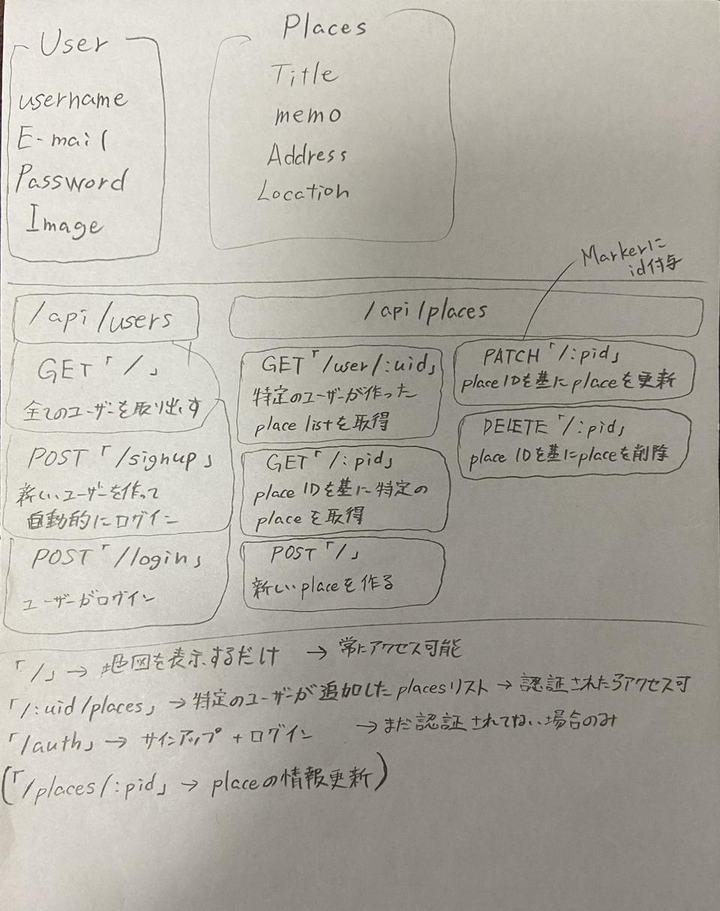 User
username
E-mail
Password
Image
Places
Title
memo
Address
Location
Markerに
id付与
/api/users
GET「/」
全てのユーザーを取り出す
POST「/signup」
新しいユーザーを作って
自動的にログイン
POST「/login」
ユーザーがログイン
/api/places
GET「/user/:uid」
特定のユーザーが作った
place listを取得
GET「/:pid」
place IDを基に特定の
placeを取得
POST「/」
新しいplaceを作る
PATCH「/:pid」
place IDを基にplaceを更新
DELETE「/:pid」
place IDを基にplaceを削除
「/」→ 地図を表示するだけ → 常にアクセス可能
「/:uid/places」→ 特定のユーザーが追加したplacesリスト → 認証されたらアクセス可
「/auth」→ サインアップ + ログイン → まだ認証されてない場合のみ
(「/places/:pid」→ placeの情報更新)